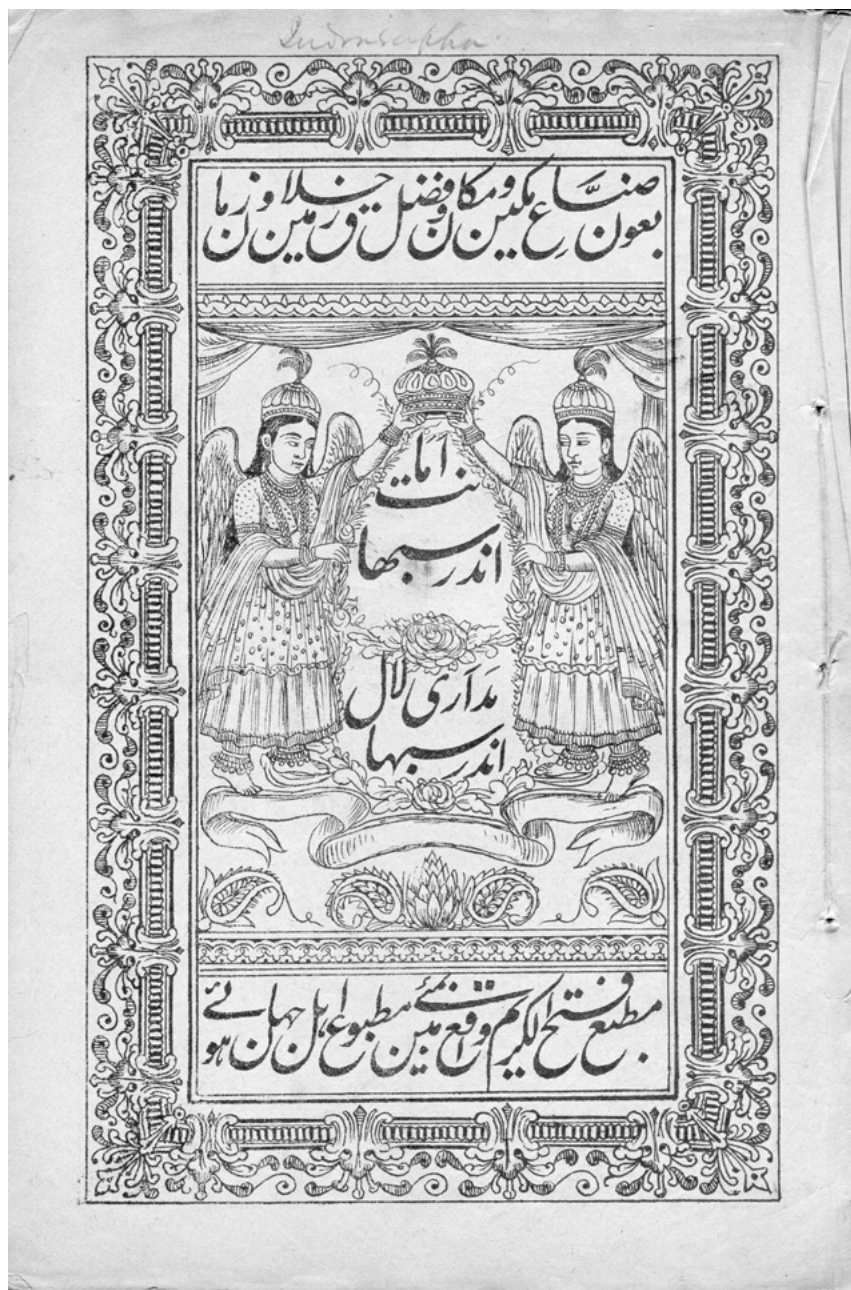 Indrasabha
بعون صنّاعِ مکین و مکان و فضل خلاق زمین و زمان
امانت
اندر سبھا
مداری لال
اندر سبہا
مطبع فتح الکریم واقع بمبئے مین مطبوع اہل جہان ہوئے